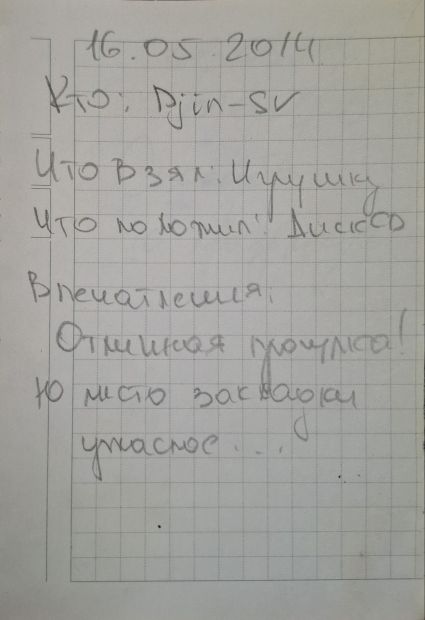 16.05.2014
Кто: Djin-SV
Что взял: Игрушку
Что положил: Диск CD
Впечатления:
Отличная прогулка!
Но место закладки
ужасное....